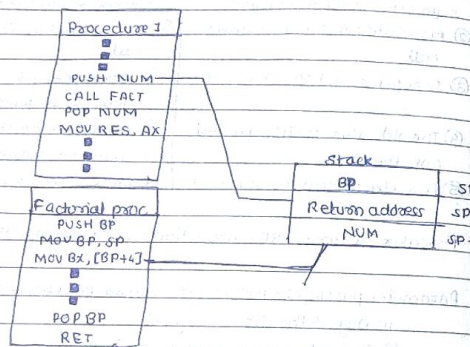 Procedure 1
PUSH NUM
CALL FACT
POP NUM
MOV RES, AX
Factorial proc
PUSH BP
MOV BP, SP
MOV BX, [BP+4]
POP BP
RET
Stack
BP
Return address
SP
NUM
SP